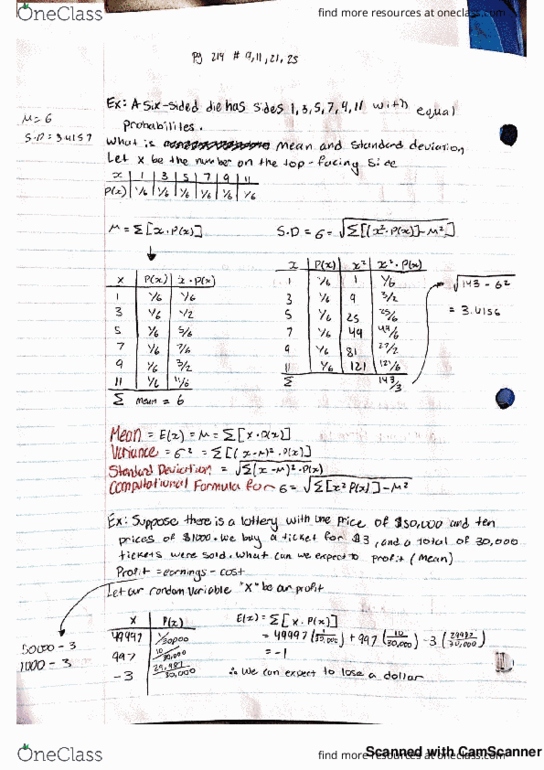 OneClass
find more resources at oneclass.com
pg 214 # 9,11,21,25
M=6
S.D=3.4157
Ex: A six-sided die has sides 1,3,5,7,9,11 with equal
probabilites.
What is mean and standard deviation
Let x be the number on the top-facing side
x 1 3 5 7 9 11
P(x) 1/6 1/6 1/6 1/6 1/6 1/6
μ = Σ[x·P(x)]
S.D = σ = √Σ[(x²·P(x)]-μ²]
x P(x) x·P(x)
1 1/6 1/6
3 1/6 1/2
5 1/6 5/6
7 1/6 7/6
9 1/6 3/2
11 1/6 11/6
Σ mean = 6
x P(x) x² x²·P(x)
1 1/6 1 1/6
3 1/6 9 3/2
5 1/6 25 25/6
7 1/6 49 49/6
9 1/6 81 27/2
11 1/6 121 121/6
Σ 143/3
√143 - 6²
= 3.4156
Mean = E(x) = μ = Σ[x·P(x)]
Variance = σ² = Σ[(x-μ)²·P(x)]
Standard Deviation = √Σ(x-μ)²·P(x)
Computational Formula for σ = √Σ[x²P(x)]-μ²
Ex: Suppose there is a lottery with one price of $50,000 and ten
prices of $1000. We buy a ticket for $3, and a total of 30,000
tickets were sold. What can we expect to profit (mean)
Profit = earnings - cost
Let our random variable "X" be our profit
50000 - 3
1000 - 3
x P(x)
49997 1/30000
997 10/30,000
-3 29,989/30,000
E(x) = Σ[x·P(x)]
= 49997(1/30,000) + 997(10/30,000) - 3(29989/30,000)
= -1
∴ We can expect to lose a dollar
OneClass
find more resources at oneclass.com
Scanned with CamScanner